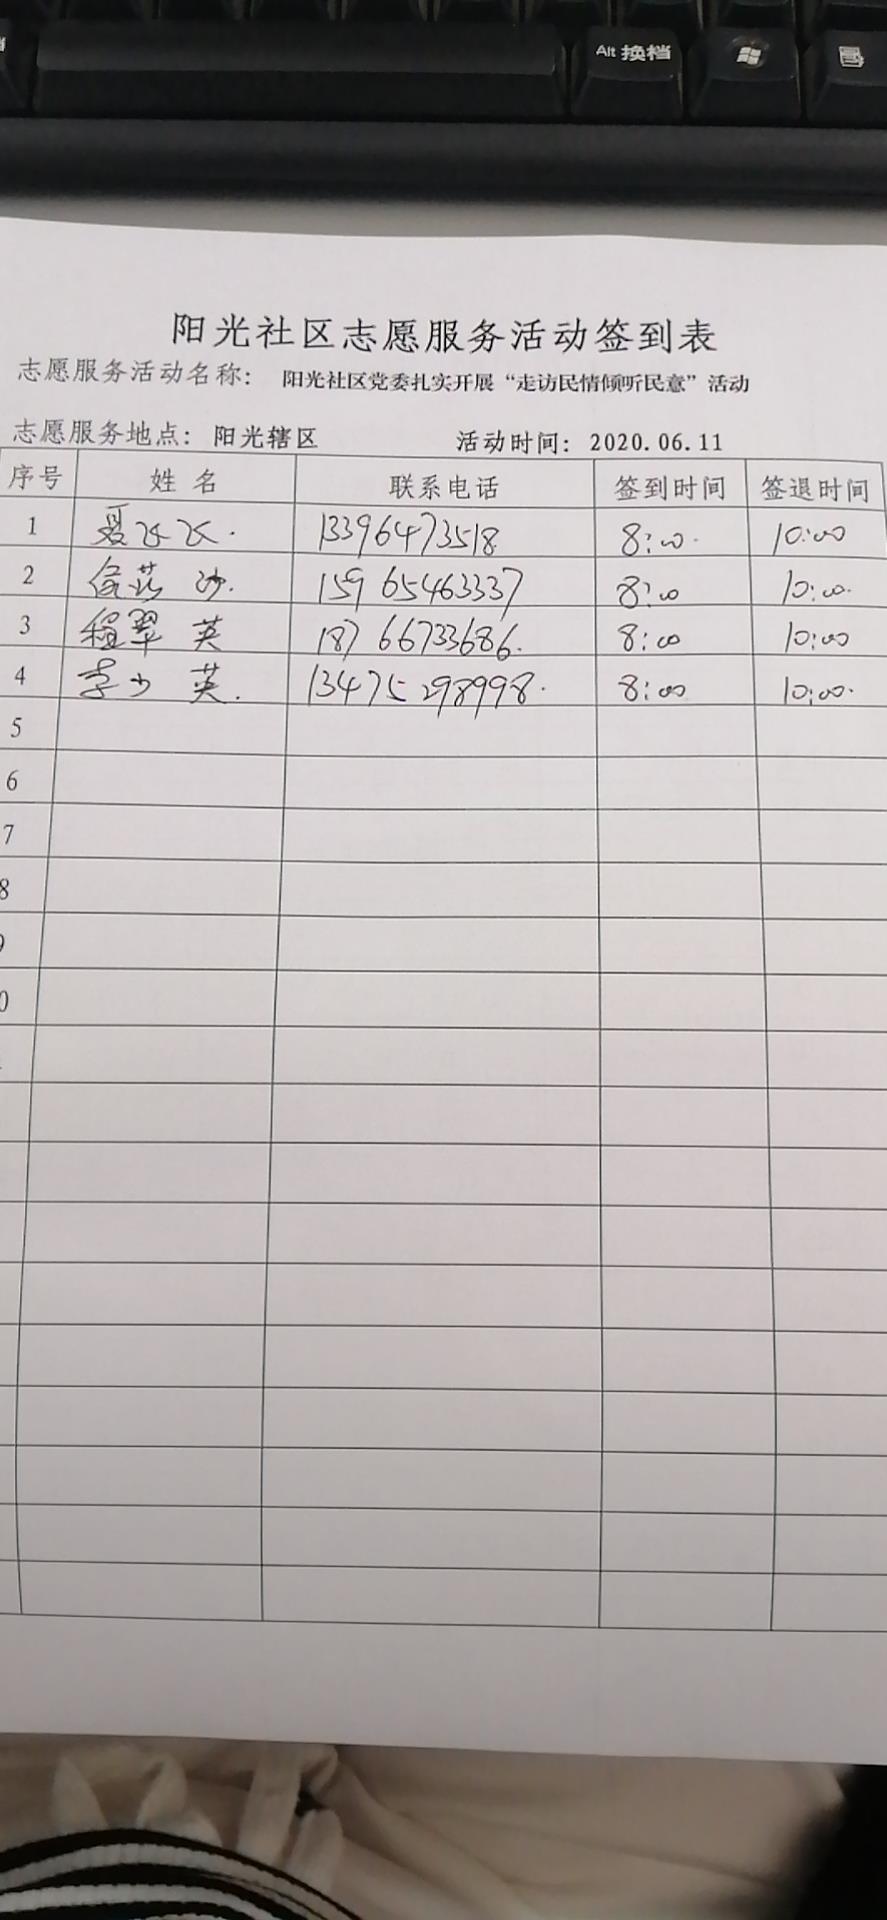 Alt 换档
阳光社区志愿服务活动签到表
志愿服务活动名称: 阳光社区党委扎实开展“走访民情倾听民意”活动
志愿服务地点: 阳光辖区 活动时间: 2020.06.11
序号 姓名 联系电话 签到时间 签退时间
1 13396473518 8:00 10:00
2 15965463337 8:00 10:00
3 程翠英 18766733686 8:00 10:00
4 李少英 13475298998 8:00 10:00
5
6
7
8